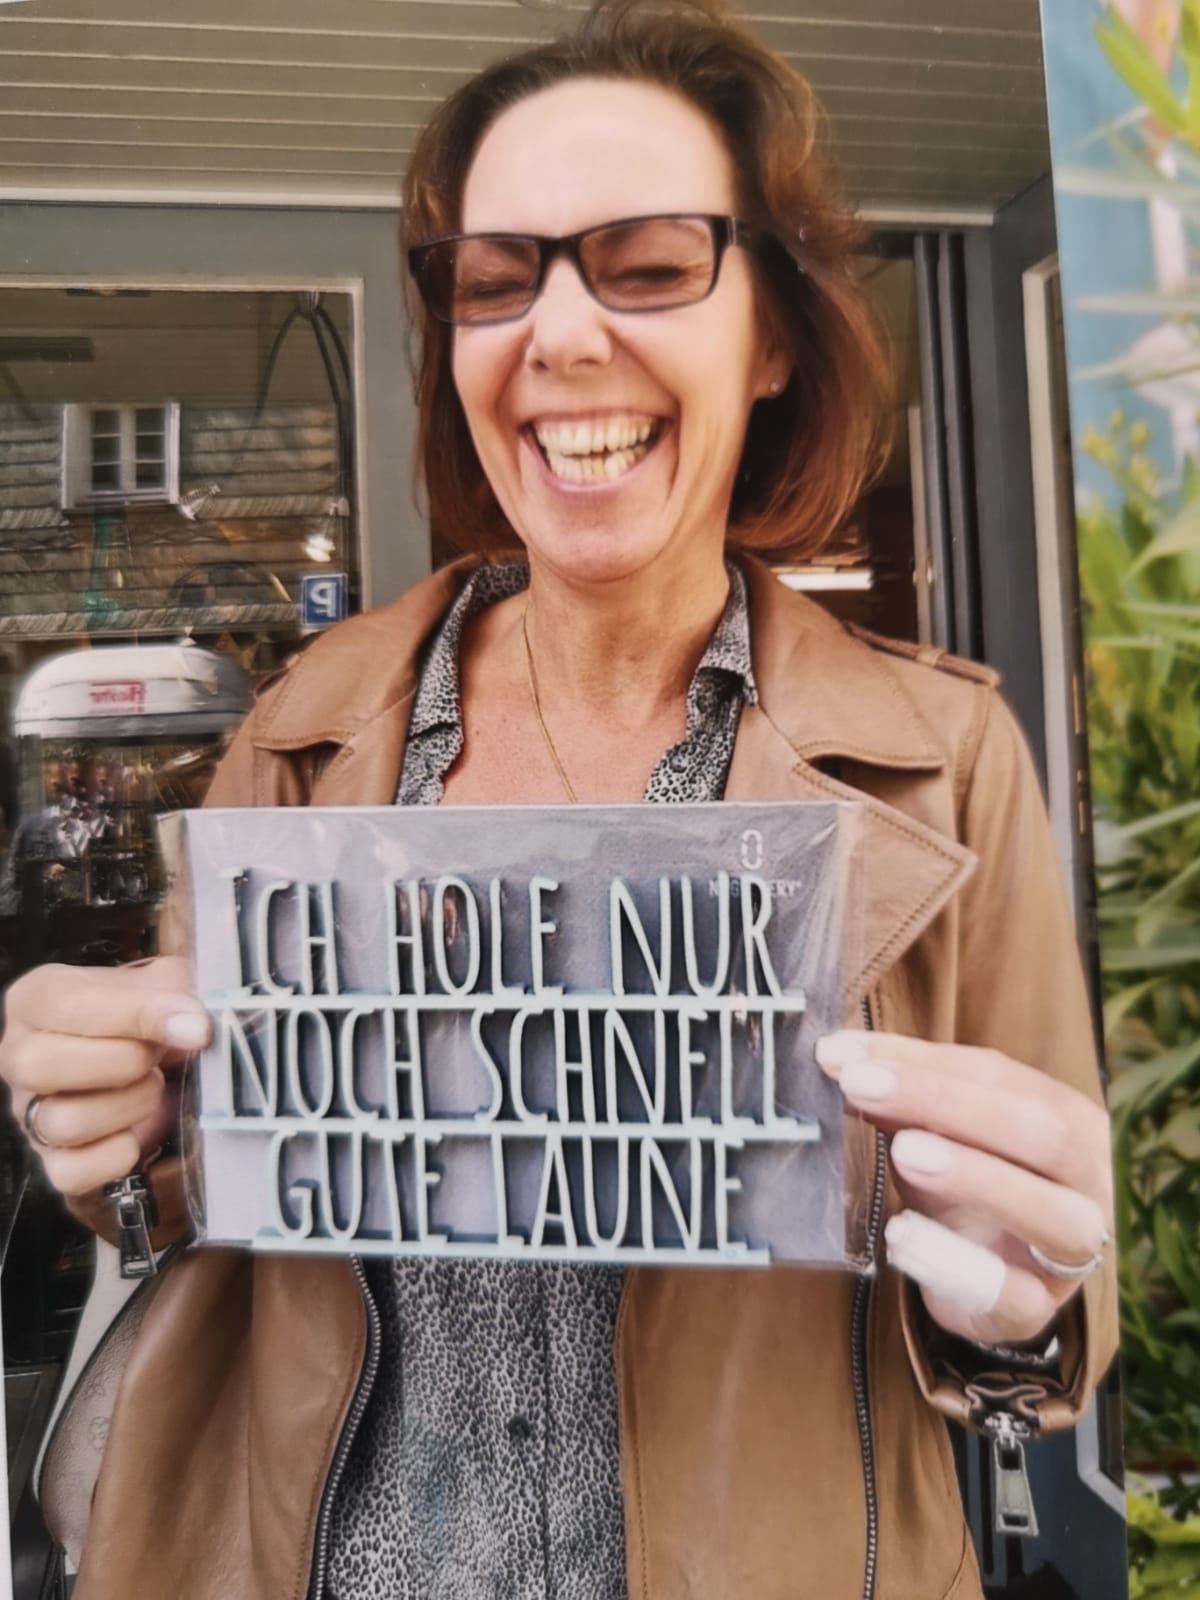 ICH HOLE NUR
NOCH SCHNELL
GUTE LAUNE